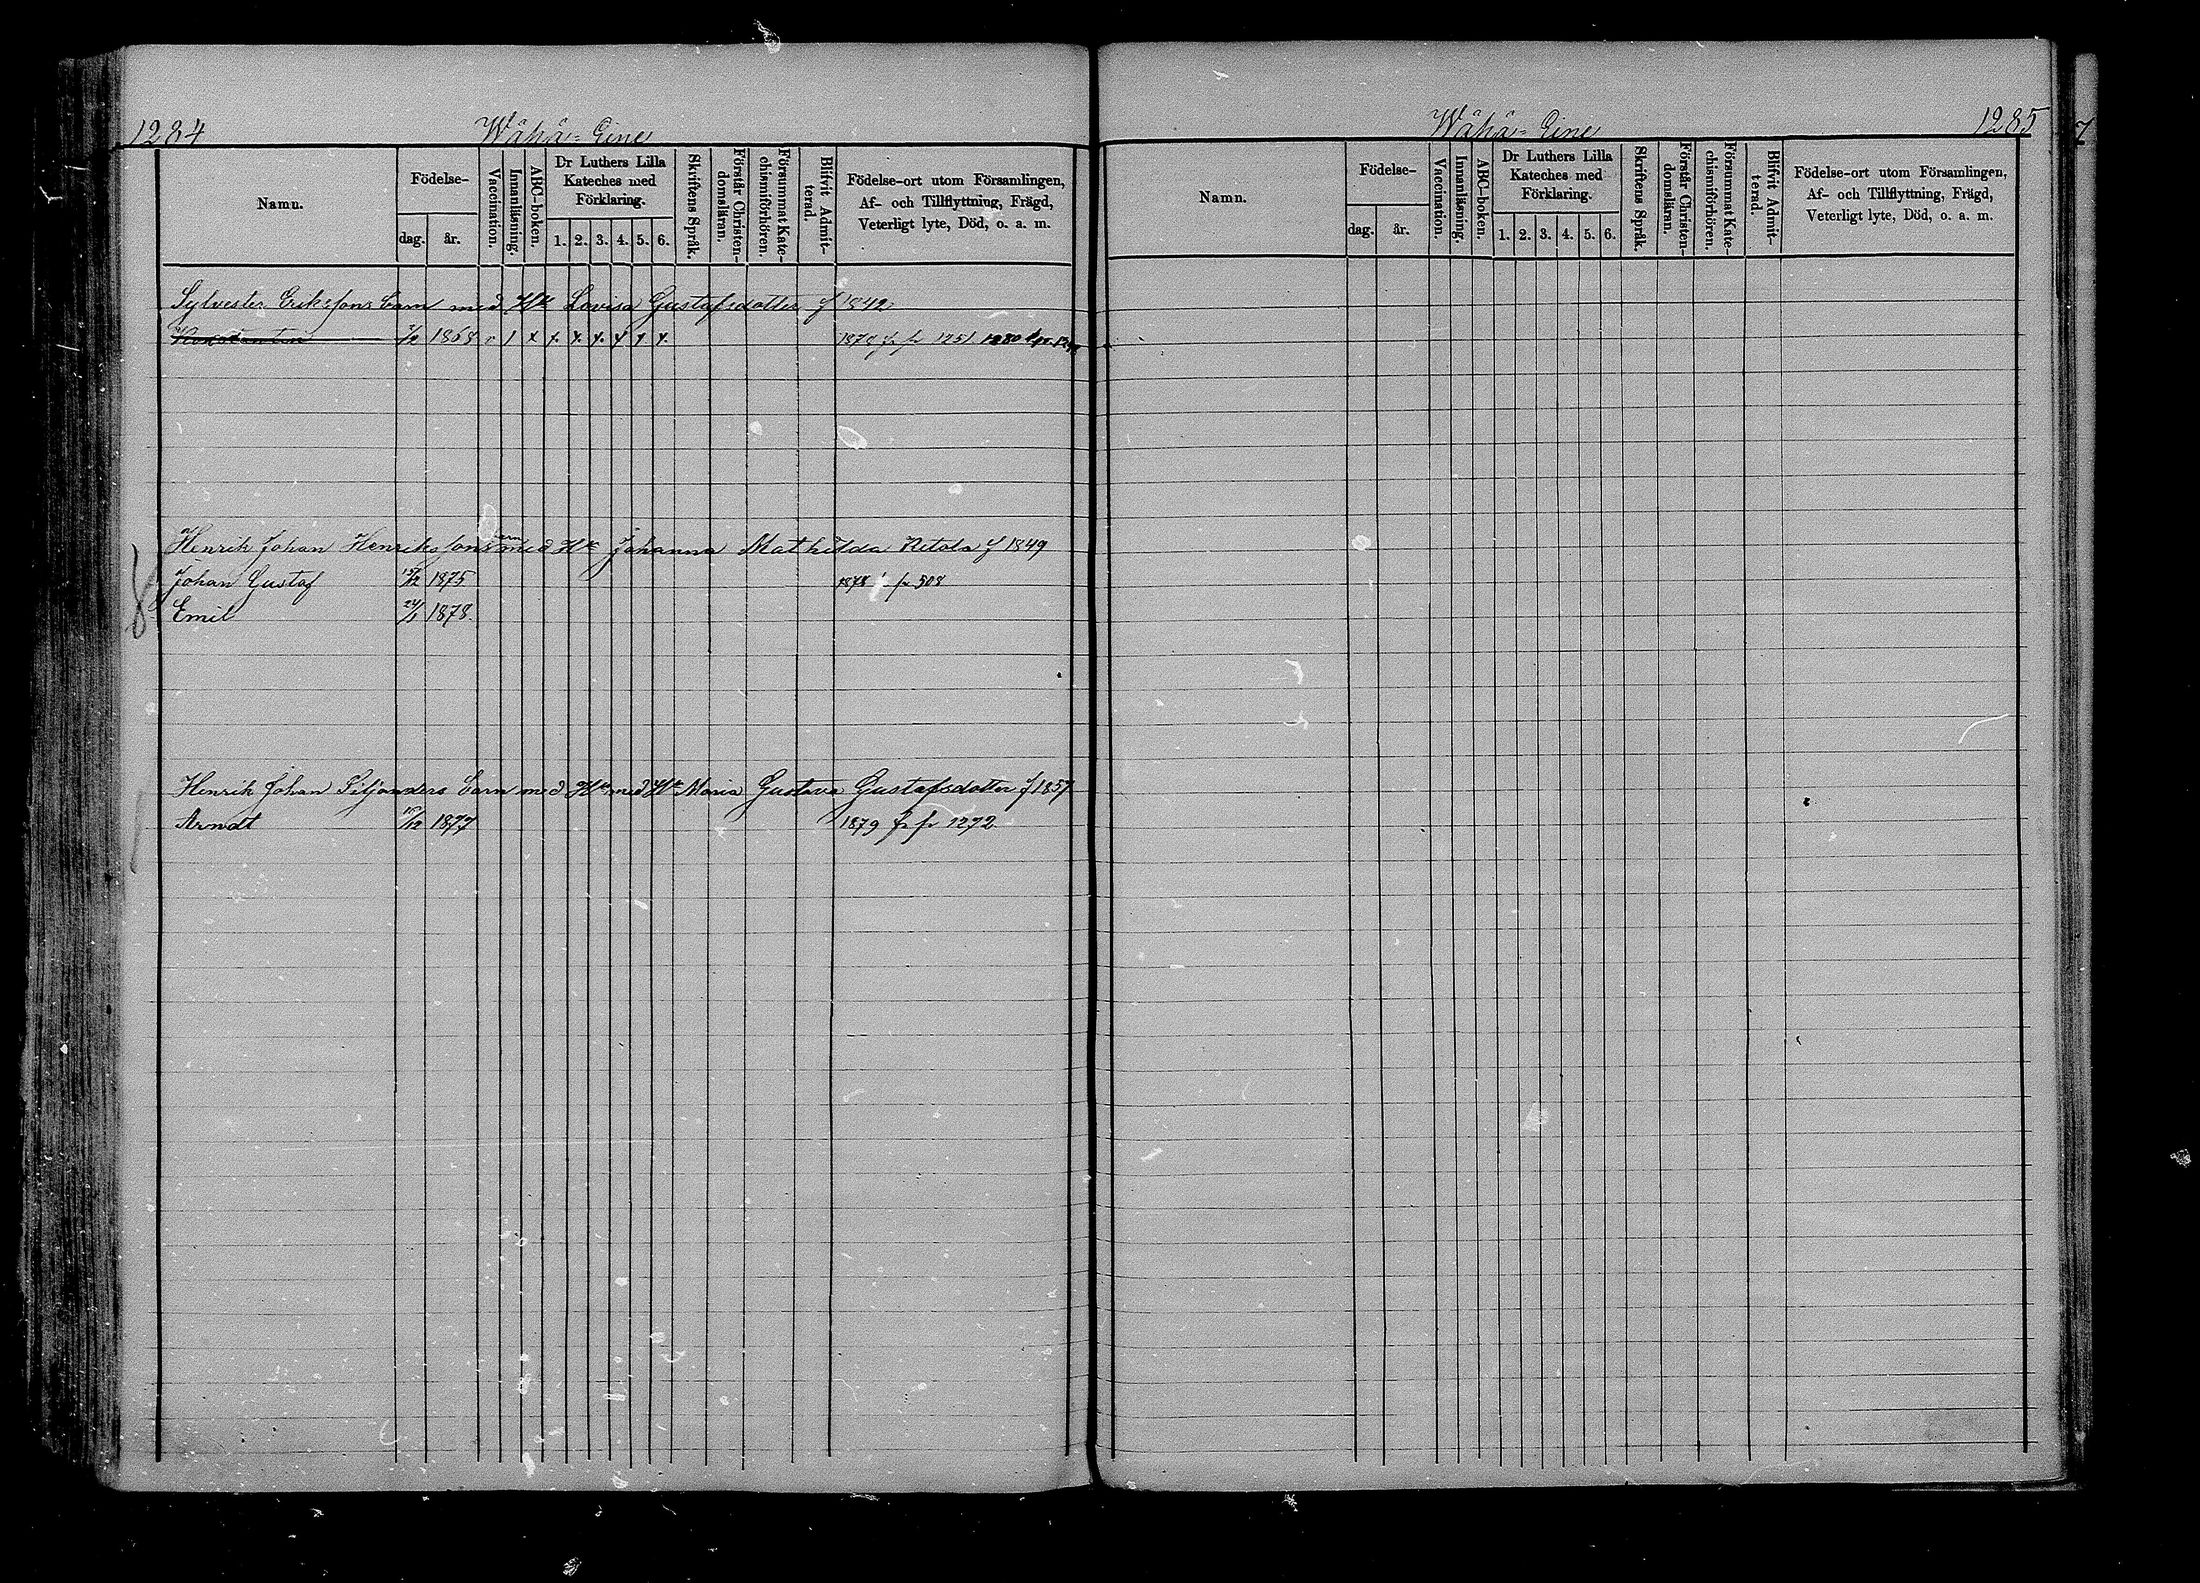 1284 Wähä-Eine
Namn.
Födelse-
dag. år.
Vaccination.
Innanläsning.
ABC-boken.
Dr Luthers Lilla Kateches med Förklaring.
1. 2. 3. 4. 5. 6.
Skriftens Språk.
Förstår Christendomsläran.
Försummat Katechismiförhören.
Blifvit Admitterad.
Födelse-ort utom Församlingen,
Af- och Tillflyttning, Frägd,
Veterligt lyte, Död, o. a. m.
Sylvester Erikssons barn med Hu Lovisa Gustafsdotter f 1842
Konstantin 1868 v 1 x x x x x x x 1870 fr p 1251 1280
Henrik Johan Henrikssons barn med Hu Johanna Mathilda f 1849
Johan Gustaf 15/12 1875 1878 fr p 508
Emil 24/1 1878
Henrik Johan Siljanders barn med Hu med Hu Maria Gustava Gustafsdotter f 1857
Arndt 1877 1879 fr p 1272
Wähä-Eine 1285
Namn.
Födelse-
dag. år.
Vaccination.
Innanläsning.
ABC-boken.
Dr Luthers Lilla Kateches med Förklaring.
1. 2. 3. 4. 5. 6.
Skriftens Språk.
Förstår Christendomsläran.
Försummat Katechismiförhören.
Blifvit Admitterad.
Födelse-ort utom Församlingen,
Af- och Tillflyttning, Frägd,
Veterligt lyte, Död, o. a. m.
7